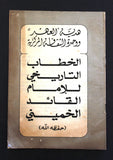 هدية العهد
وحدة النقطة المركزية
الخطاب
التاريخي
للإمام
القائد
الخميني
(حفظه الله)